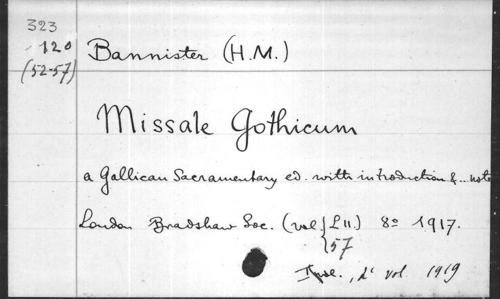 323
120
(52-57)
Bannister (H.M.)
Missale Gothicum
a Gallican Sacramentary ed. with introduction & ... note
London Bradshaw Soc. (vol { LII.) 8º 1917.
57
vol. 1919